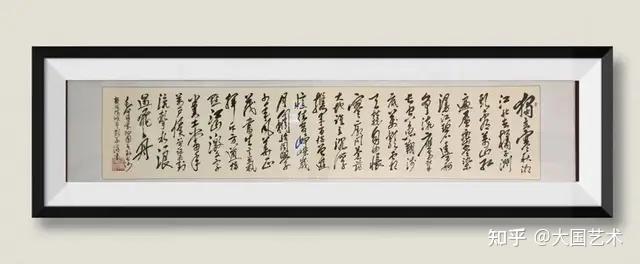 独立寒秋湘
江北去橘子洲
头看万山红
遍层林尽染
漫江碧透百舸
争流鹰击
长空鱼翔浅
底万类霜
天竞自由怅
寥廓问苍茫
大地谁主沉浮
携来百侣曾游
忆往昔峥嵘岁
月稠恰同学
少年风华正
茂书生意气
挥斥方遒指
点江山激扬文字
粪土当年
万户侯曾记否到
中流击水浪
遏飞舟
知乎 @大国艺术